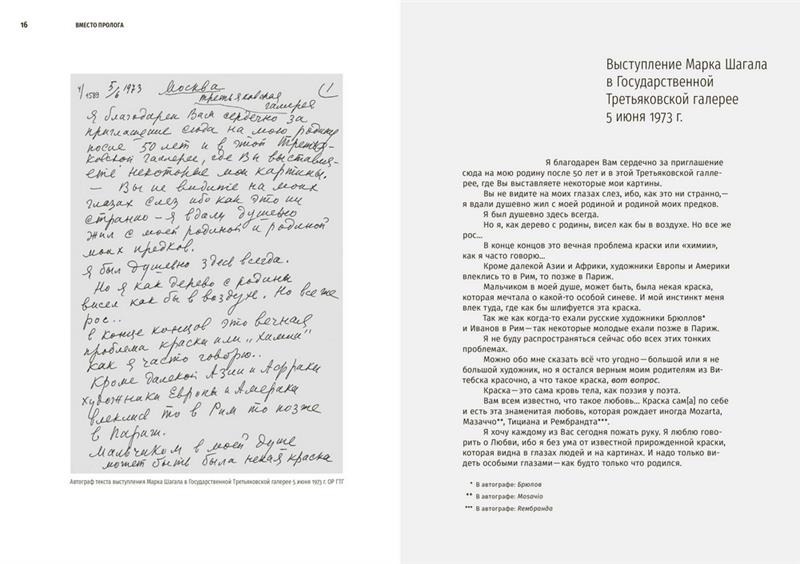 16
ВМЕСТО ПРОЛОГА
5/6 1973 Москва
1
третьяковская
галерея
Я благодарен Вам сердечно за
приглашение сюда на мою родину
после 50 лет и в этой Третья-
ковской галлерее, где Вы выставля-
ете некоторые мои картины.
— Вы не видите на моих
глазах слез ибо как это ни
странно — я вдали душевно
жил с моей родиной и родиной
моих предков.
Я был душевно здесь всегда.
Но я как дерево с родины
висел как бы в воздухе. Но все же
рос..
в конце концов это вечная
проблема краски или „химии"
как я часто говорю..
Кроме далекой Азии и Африки
художники Европы и Америки
влеклись то в Рим то позже
в Париж.
Мальчиком в моей душе
может быть была некая краска
Автограф текста выступления Марка Шагала в Государственной Третьяковской галерее 5 июня 1973 г. ОР ГТГ
Выступление Марка Шагала
в Государственной
Третьяковской галерее
5 июня 1973 г.
Я благодарен Вам сердечно за приглашение
сюда на мою родину после 50 лет и в этой Третьяковской галле-
рее, где Вы выставляете некоторые мои картины.
Вы не видите на моих глазах слез, ибо, как это ни странно,—
я вдали душевно жил с моей родиной и родиной моих предков.
Я был душевно здесь всегда.
Но я, как дерево с родины, висел как бы в воздухе. Но все же
рос...
В конце концов это вечная проблема краски или «химии»,
как я часто говорю...
Кроме далекой Азии и Африки, художники Европы и Америки
влеклись то в Рим, то позже в Париж.
Мальчиком в моей душе, может быть, была некая краска,
которая мечтала о какой-то особой синеве. И мой инстинкт меня
влек туда, где как бы шлифуется эта краска.
Так же как когда-то ехали русские художники Брюллов*
и Иванов в Рим—так некоторые молодые ехали позже в Париж.
Я не буду распространяться сейчас обо всех этих тонких
проблемах.
Можно обо мне сказать всё что угодно—большой или я не
большой художник, но я остался верным моим родителям из Ви-
тебска красочно, а что такое краска, вот вопрос.
Краска—это сама кровь тела, как поэзия у поэта.
Вам всем известно, что такое любовь... Краска сам[а] по себе
и есть эта знаменитая любовь, которая рождает иногда Mozarta,
Мазаччо**, Тициана и Рембрандта***.
Я хочу каждому из Вас сегодня пожать руку. Я люблю гово-
рить о Любви, ибо я без ума от известной прирожденной краски,
которая видна в глазах людей и на картинах. И надо только ви-
деть особыми глазами—как будто только что родился.
* В автографе: Брюлов
** В автографе: Mosavio
*** В автографе: Rембранда